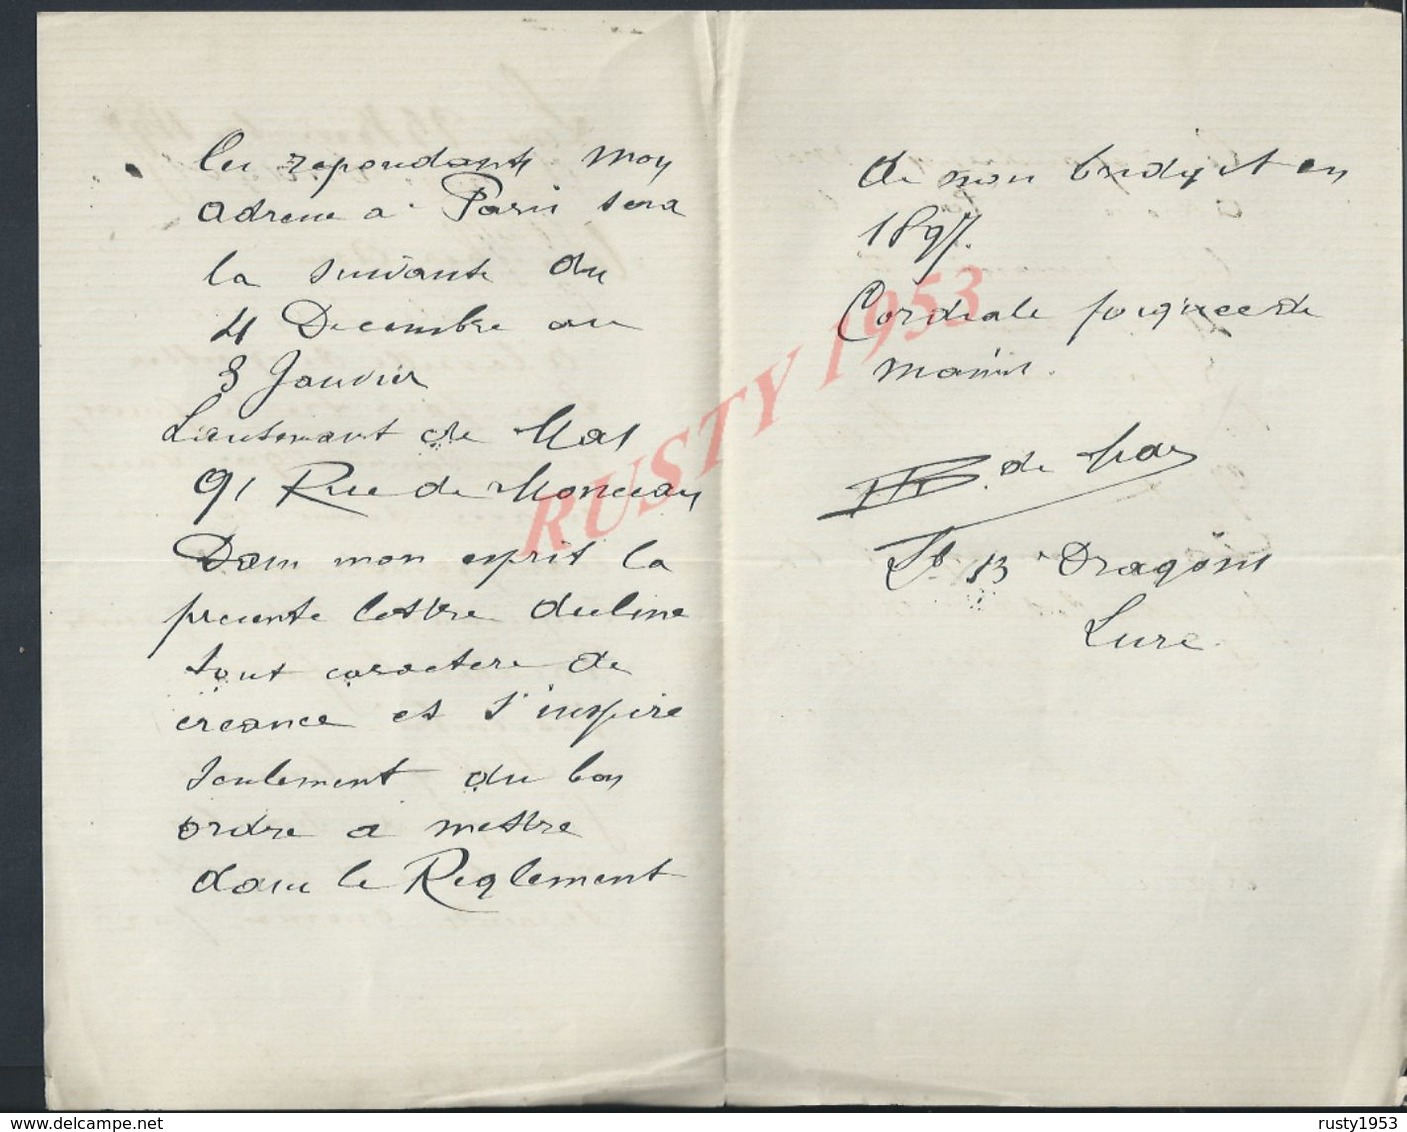 les repondants mon
adresse a Paris sera
la suivante du
4 Decembre au
3 Janvier
Lieutenant de Mas
91 Rue de Monceau
Dans mon esprit la
presente lettre decline
tout caractere de
creance et s'inspire
seulement du bon
ordre a mettre
dans le Reglement
de mon budget en
1897.
Cordiale poignee de
mains.
de Mas
Lt 13e Dragons
Lure.
RUSTY 1953
delcampe.net
rusty1953